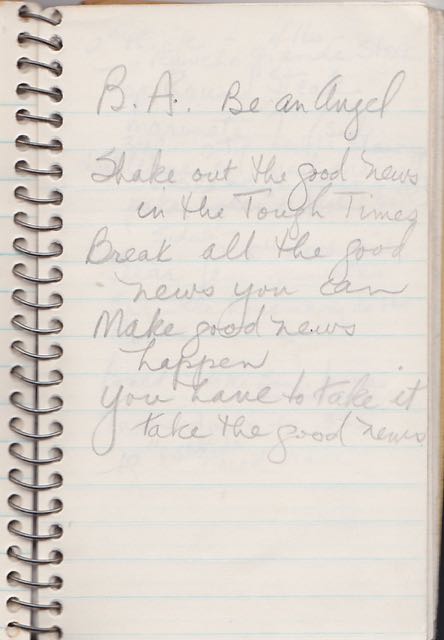 B. A. Be an Angel
Shake out the good news
in the Tough Times
Break all the good
news you can
Make good news
happen
You have to take it
take the good news